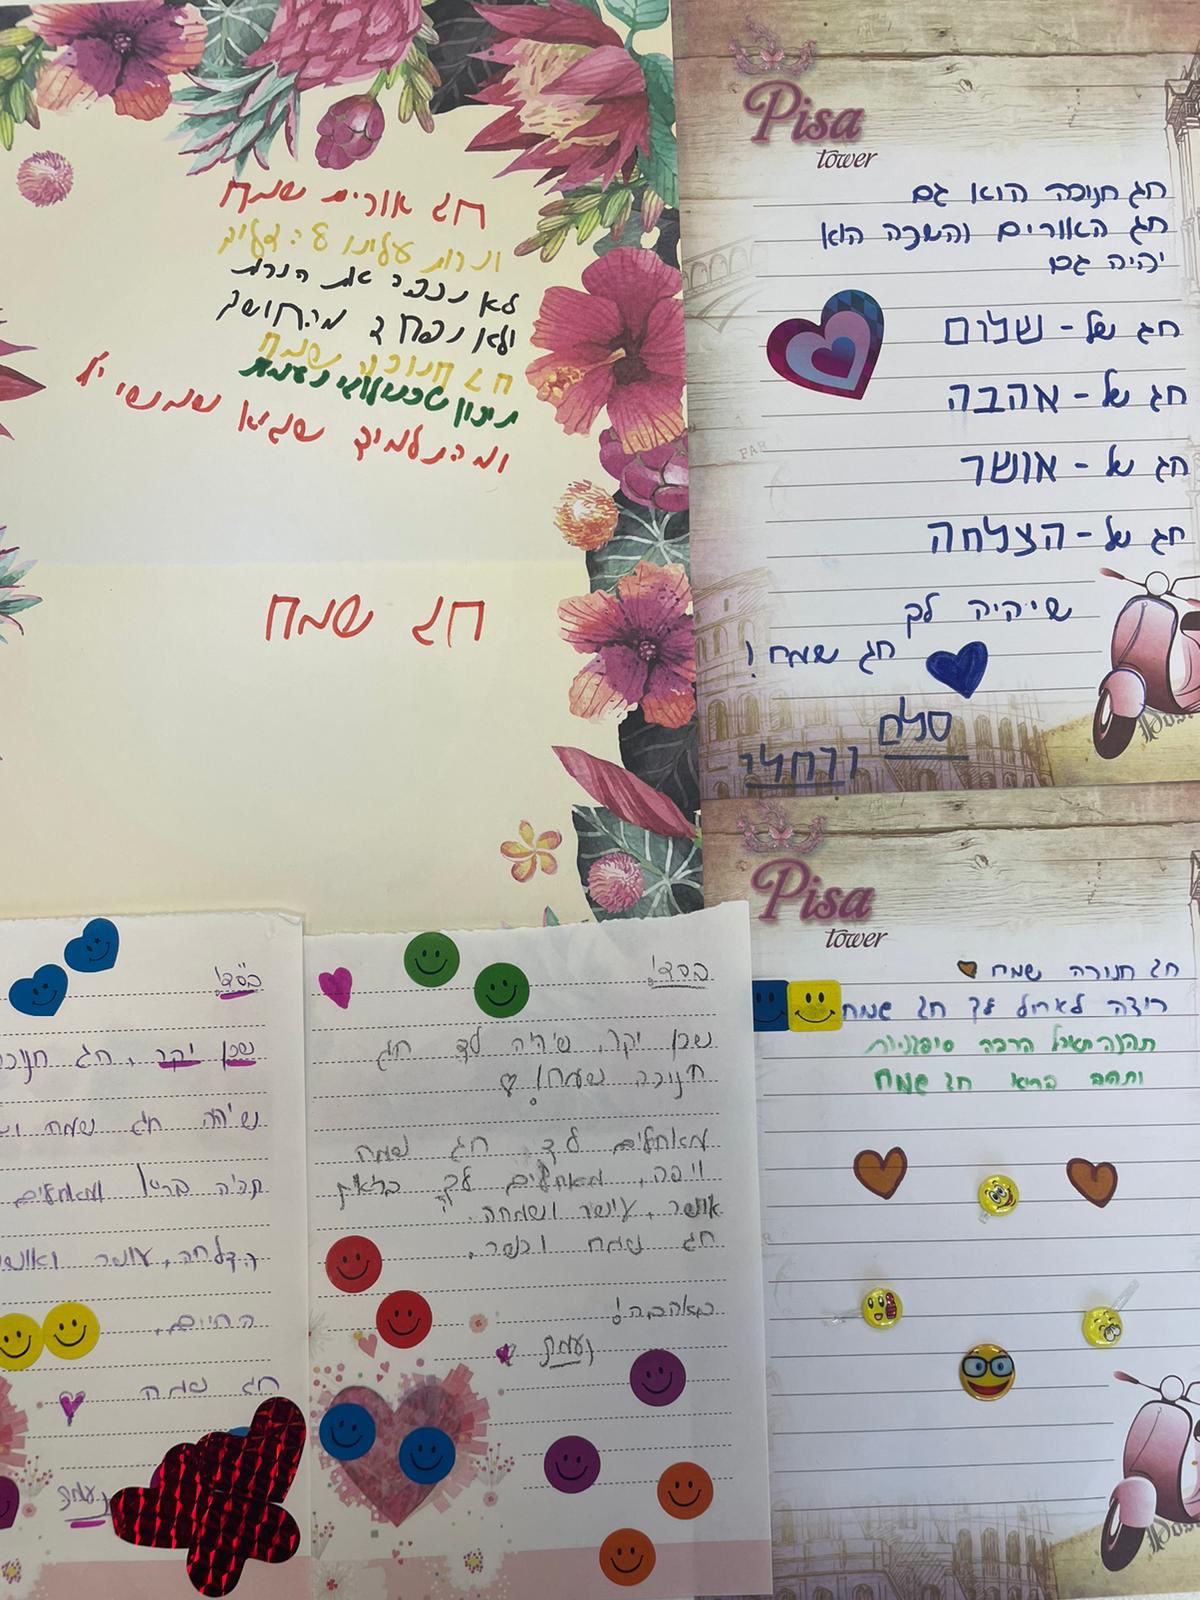 חג אורים שמח
ונרות עלינו
לא נכבה את הנרות
ולא נפחד מהחושך
חג חנוכה שמח
תיכון טכנולוגי נעמת
ומהתלמיד שגיא שמשי
חג שמח
Pisa
tower
חג חנוכה הוא גם
חג האורים והשנה הוא
יהיה גם
חג של - שלום
חג של - אהבה
חג של - אושר
חג של - הצלחה
שיהיה לך
חג שמח!
סלם
ורחלי
Pisa
tower
חג חנוכה שמח
רוצה לאחל לך חג שמח
הרבה סופגניות
ותהיה בריא חג שמח
בס"ד!
שכן יקר, חג
שיהיה חג שמח
תהיה בריא ומאחלים
הצלחה, עושר
החיים.
חג שמח
נעמה
בס"ד!
שכן יקר, שיהיה לך חג
חנוכה שמח!
מאחלים לך חג שמח
ויפה, מאחלים לך בריאות
אושר, עושר ושמחה.
חג שמח וכשר.
באהבה!
נעמה